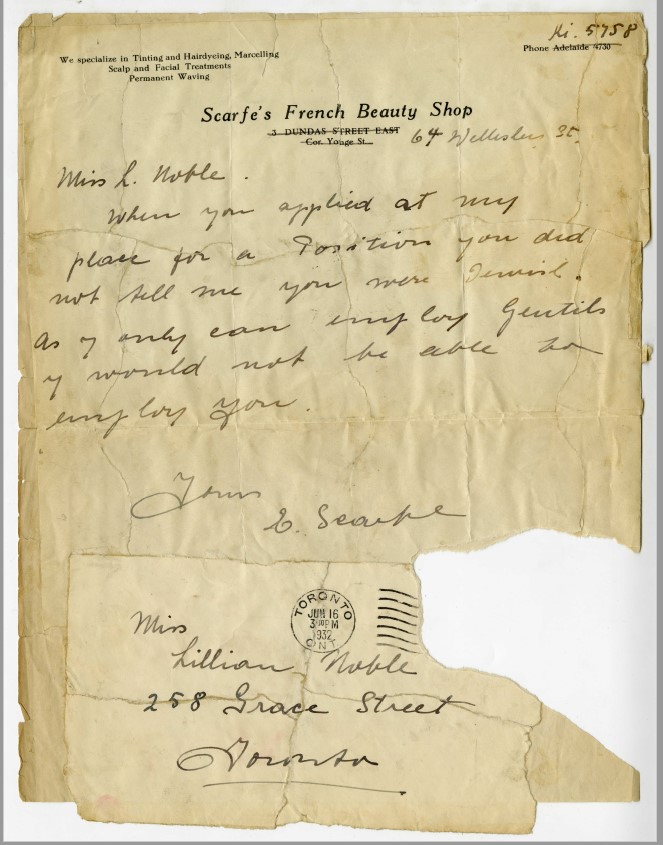 Ki. 5758
We specialize in Tinting and Hairdyeing, Marcelling
Scalp and Facial Treatments
Permanent Waving
Phone Adelaide 4730
Scarfe's French Beauty Shop
3 DUNDAS STREET EAST
Cor. Yonge St.
64 Wellesley St.
Miss L. Noble.
When you applied at my
place for a Position you did
not tell me you were Jewish.
As y only can employ Gentils
y would not be able to
employ you.
Yours
E. Scarfe
TORONTO
JUN 16
3 PM
1932
ONT.
Miss
Lillian Noble
258 Grace Street
Toronto